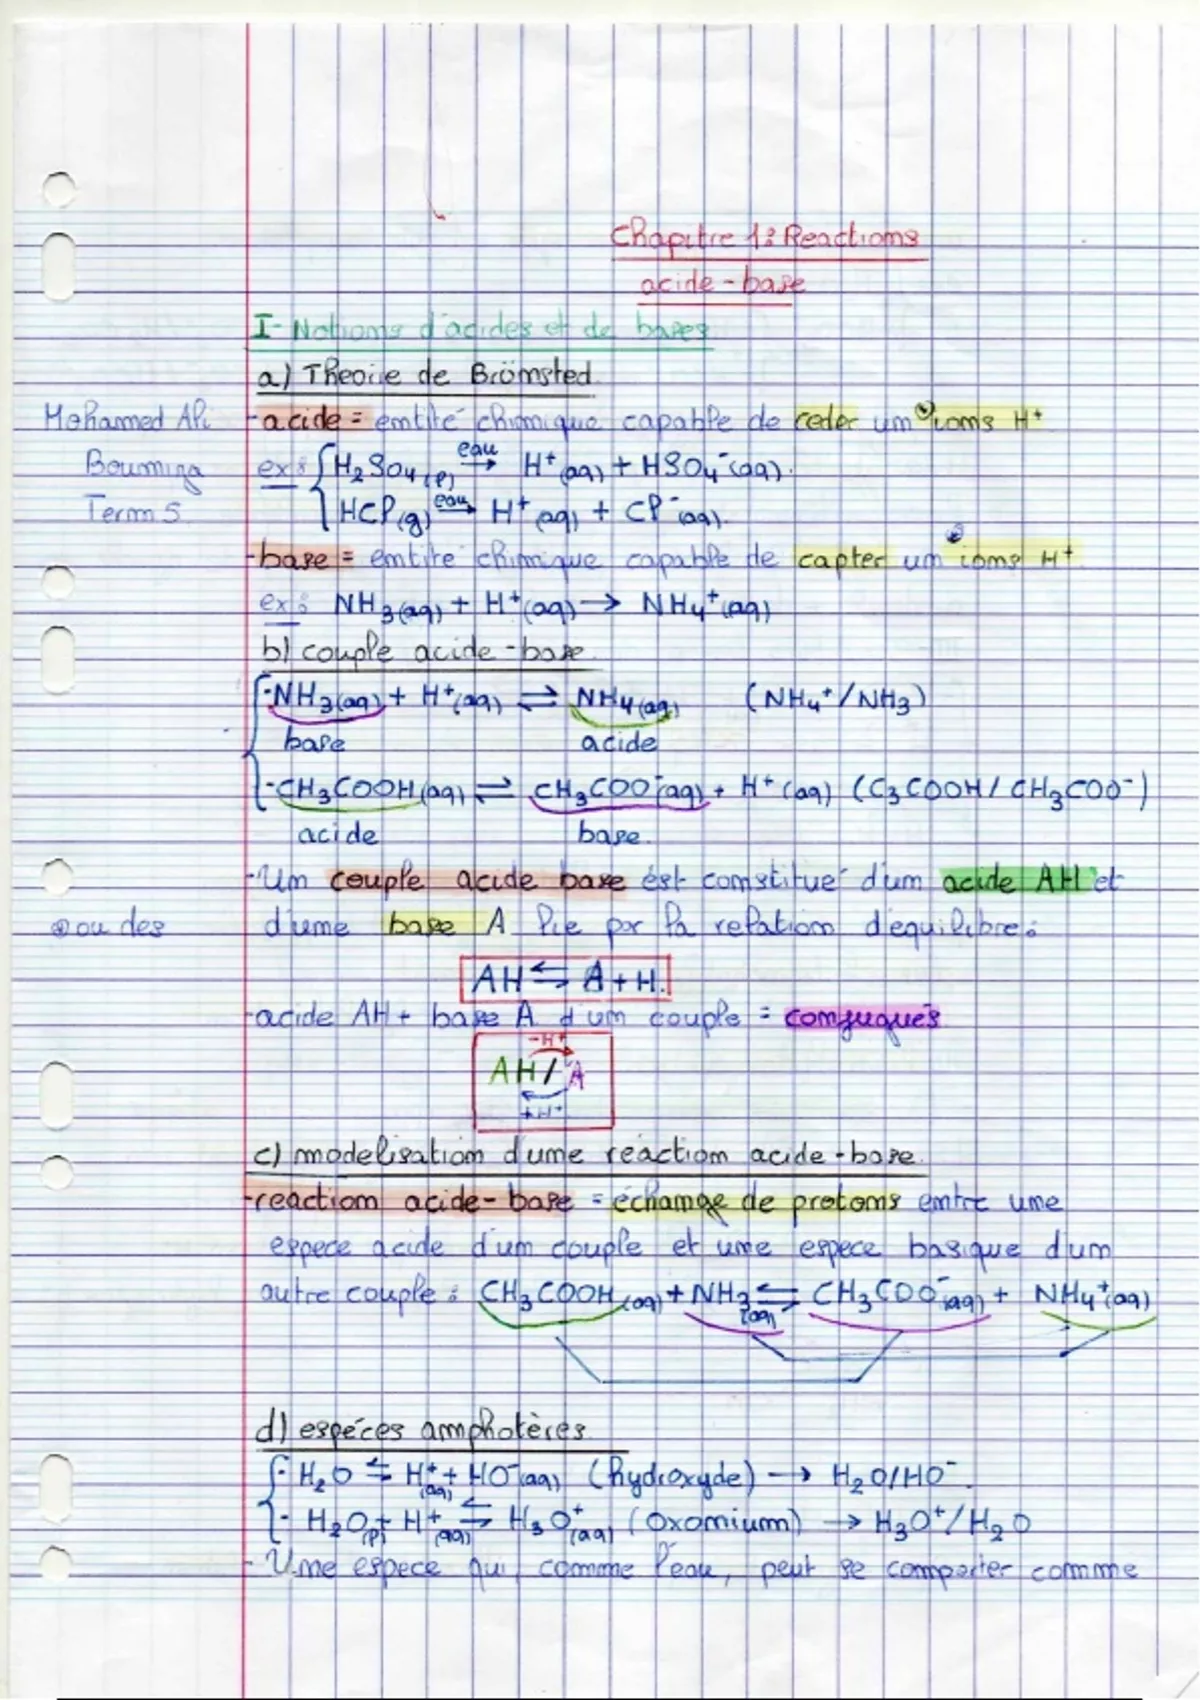 Chapitre 1: Reactions
acide-base
I- Notions d'acides et de bases
a) Theorie de Brönsted.
Mohamed Ali
Boumiza
Term S
-acide = entité chimique capable de ceder un ⊙ ions H⁺
ex: H₂SO₄(l) eau→ H⁺(aq) + HSO₄⁻(aq).
HCl(g) eau→ H⁺(aq) + Cl⁻(aq).
-base = entité chimique capable de capter un ⊙ ions H⁺
ex: NH₃(aq) + H⁺(aq) → NH₄⁺(aq)
b) couple acide-base
-NH₃(aq) + H⁺(aq) ⇌ NH₄(aq) (NH₄⁺/NH₃)
base acide
-CH₃COOH(aq) ⇌ CH₃COO⁻(aq) + H⁺(aq) (C₃COOH/CH₃COO⁻)
acide base.
-Un couple acide base est constitué d'un acide AH et
⊙ ou des
d'une base A lie par la relation d'equilibre:
AH ⇆ A + H.
-acide AH + base A d'un couple = conjugués
-H⁺
AH/A
+H⁺
c) modelisation d'une réaction acide-base.
-reaction acide-base = échange de protons entre une
espece acide d'un couple et une espece basique d'un
autre couple: CH₃COOH(aq) + NH₃(aq) ⇆ CH₃COO⁻(aq) + NH₄⁺(aq)
d) espéces amphotères.
- H₂O ⇆ H⁺(aq) + HO⁻(aq) (hydroxyde) → H₂O/HO⁻
- H₂O(l) + H⁺(aq) ⇆ H₃O⁺(aq) (oxonium) → H₃O⁺/H₂O
- Une espece qui, comme l'eau, peut se comporter comme